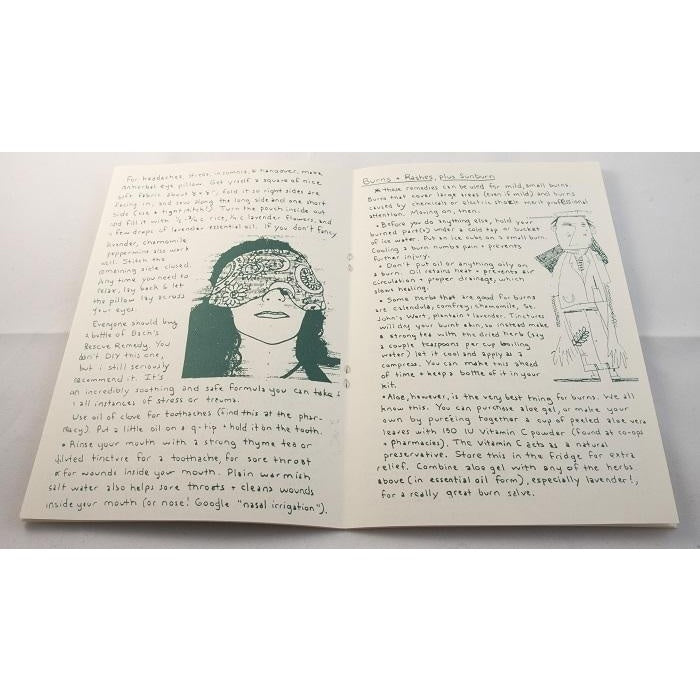 For headaches, stress, insomnia, & hangover, make
an herbal eye pillow. Get yrself a square of nice
soft fabric about 8"x 8", fold it so right sides are
facing in, and sew along the long side and one short
side (use a tight stitch). Turn the pouch inside out
and fill it with rice, lavender flowers, and
a few drops of lavender essential oil. If you don't fancy
lavender, chamomile
peppermint also work
well. Stitch the
remaining side closed.
Any time you need to
relax, lay back & let
the pillow lay across
your eyes.
Everyone should buy
a bottle of Bach's
Rescue Remedy. You
don't DIY this one,
but i still seriously
recommend it. It's
an incredibly soothing and safe formula you can take
i all instances of stress or trauma.
Use oil of clove for toothaches (find this at the phar-
macy). Put a little oil on a q-tip + hold it on the tooth.
• Rinse your mouth with a strong thyme tea or
diluted tincture for a toothache, for sore throat
or for wounds inside your mouth. Plain warmish
salt water also helps sore throats + cleans wounds
inside your mouth (or nose! Google "nasal irrigation").
Burns + Rashes, plus Sunburn
* These remedies can be used for mild, small burns.
Burns that cover large areas (even if mild) and burns
caused by chemicals or electric shock merit professional
attention. Moving on, then:
• Before you do anything else, hold your
burned part(s) under a cold tap or bucket
of ice water. Put an ice cube on a small burn.
Cooling a burn numbs pain + prevents
further injury.
• Don't put oil or anything oily on
a burn. Oil retains heat + prevents air
circulation + proper drainage, which
slows healing.
• Some herbs that are good for burns
are calendula, comfrey, chamomile, St.
John's Wort, plantain + lavender. Tinctures
will dry your burnt skin, so instead make
a strong tea with the dried herb (say
a couple teaspoons per cup boiling
water) let it cool and apply as a
compress. You can make this ahead
of time + keep a bottle of it in your
kit.
• Aloe, however, is the very best thing for burns. We all
know this. You can purchase aloe gel, or make your
own by pureeing together a cup of peeled aloe vera
leaves with 150 IU vitamin C powder (found at co-ops
+ pharmacies). The vitamin C acts as a natural
preservative. Store this in the fridge for extra
relief. Combine aloe gel with any of the herbs
above (in essential oil form), especially lavender!,
for a really great burn salve.